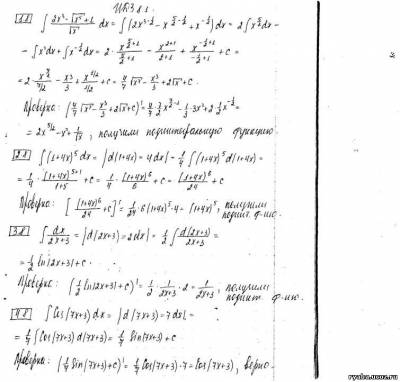 ИДЗ 8.1
1.1 ∫ (2x³ - √x⁵ + 1)/√x dx = ∫(2x^{3-1/2} - x^{5/2-1/2} + x^{-1/2})dx = 2∫x^{5/2}dx -
- ∫x²dx + ∫x^{-1/2}dx = 2 · x^{5/2+1}/(5/2+1) - x^{2+1}/(2+1) + x^{-1/2+1}/(-1/2+1) + c =
= 2 · x^{7/2}/(7/2) - x³/3 + x^{1/2}/(1/2) + c = 4/7 √x⁷ - x³/3 + 2√x + c.
Проверка: (4/7 √x⁷ - x³/3 + 2√x + c)' = 4/7 · 7/2 x^{7/2-1} - 1/3 · 3x² + 2 · 1/2 x^{-1/2} =
= 2x^{5/2} - x² + 1/√x, получили подинтегральную функцию
2.1 ∫(1+4x)⁵dx = |d(1+4x) = 4dx| = 1/4 ∫(1+4x)⁵ d(1+4x) =
= 1/4 · (1+4x)^{5+1}/(5+1) + c = 1/4 · (1+4x)⁶/6 + c = (1+4x)⁶/24 + c
Проверка: [(1+4x)⁶/24 + c]' = 1/24 · 6(1+4x)⁵ · 4 = (1+4x)⁵, получили
подинт. ф-ию.
3.1 ∫ dx/(2x+3) = |d(2x+3) = 2dx| = 1/2 ∫ d(2x+3)/(2x+3) =
= 1/2 ln|2x+3| + c.
Проверка: (1/2 ln|2x+3| + c)' = 1/2 · 1/(2x+3) · 2 = 1/(2x+3), получили
подинт. ф-ию.
4.1 ∫cos(7x+3)dx = |d(7x+3) = 7dx| =
= 1/7 ∫cos(7x+3)d(7x+3) = 1/7 sin(7x+3) + c
Проверка: (1/7 sin(7x+3) + c)' = 1/7 cos(7x+3) · 7 = cos(7x+3), верно.
ryalex.ucoz.ru